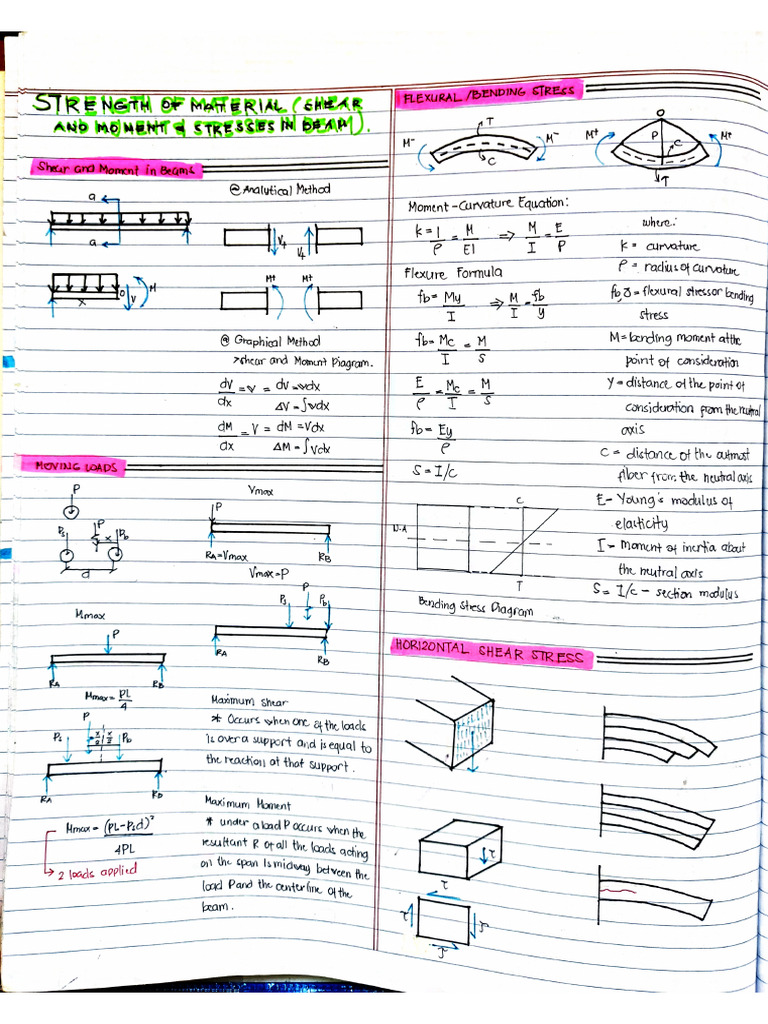 STRENGTH OF MATERIAL (SHEAR
AND MOMENT & STRESSES IN BEAM).
Shear and Moment in Beams
@ Analytical Method
a
a
V+
V+
x
O
V
M
M+
M+
@ Graphical Method
>shear and Moment Diagram.
dV/dx = v = dV = vdx
ΔV = ∫vdx
dM/dx = V = dM = Vdx
ΔM = ∫Vdx
MOVING LOADS
P
Ps
P
x
Pb
d
Vmax
P
RA = Vmax
RB
Vmax = P
Ps
P
Pb
RA
RB
Mmax
P
RA
RB
Mmax = PL/4
P
Ps
x/2
x/2
Pb
RA
RB
Mmax = (PL-Psd)²/4PL
2 loads applied
Maximum shear
* Occurs when one of the loads
is over a support and is equal to
the reaction at that support.
Maximum Moment
* under a load P occurs when the
resultant R of all the loads acting
on the span is midway between the
load P and the centerline of the
beam.
FLEXURAL/BENDING STRESS
M-
T
C
M-
O
M+
P
C
M+
T
Moment-Curvature Equation:
k = 1/ρ = M/EI => M/I = E/ρ
Flexure Formula
fb = My/I => M/I = fb/y
fb = Mc/I = M/S
E/ρ = Mc/I = M/S
fb = Ey/ρ
S = I/c
where:
k = curvature
ρ = radius of curvature
fb,σ = flexural stress or bending
stress
M = bending moment at the
point of consideration
Y = distance of the point of
consideration from the neutral
axis
C = distance of the outmost
fiber from the neutral axis
E- Young's modulus of
elasticity
I - moment of inertia about
the neutral axis
S = I/c - section modulus
N-A
C
T
Bending Stess Diagram
HORIZONTAL SHEAR STRESS
τ
τ
τ
τ
τ